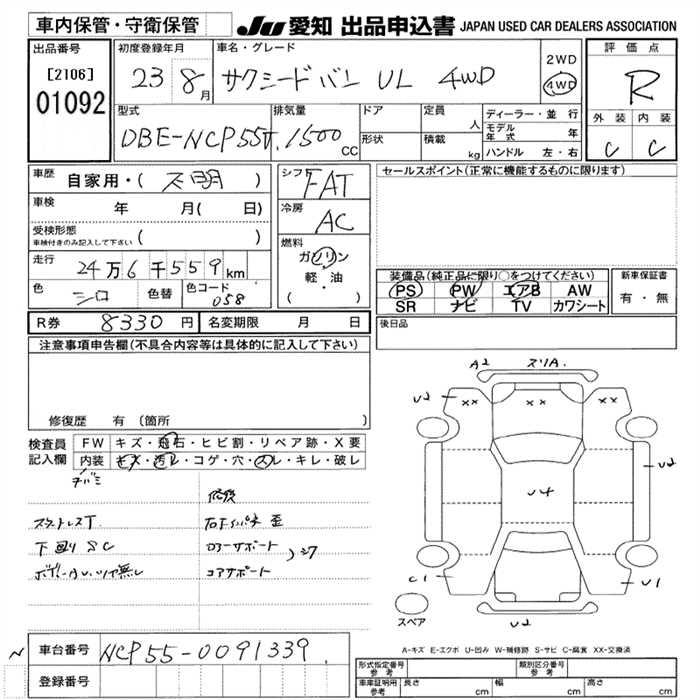 車内保管・守衛保管
JU 愛知 出品申込書 JAPAN USED CAR DEALERS ASSOCIATION
出品番号
[2106]
01092
初度登録年月
23 8月
車名・グレード
サクシードバン UL 4WD
2WD
4WD
評価点
R
外装 内装
C C
型式
DBE-NCP55V
排気量
1500 CC
ドア
形状
定員
人
積載
kg
ディーラー・並行
モデル年式 年
ハンドル 左・右
車歴
自家用・( 不明 )
車検
年 月( 日)
受検形態
車検付きのみ記入して下さい ( )
走行
24万6千559km
色
シロ
色替
色コード
058
シフト
FAT
冷房
AC
燃料
ガソリン
軽・油
( ・ )
セールスポイント(正常に機能するものに限ります)
装備品(純正品に限り○をつけてください)
PS PW エアB AW
SR ナビ TV カワシート
新車保証書
有・無
後日品
R券 8330円
名変期限 月 日
注意事項申告欄(不具合内容等は具体的に記入して下さい)
修復歴 有 (箇所 )
検査員記入欄
FW キズ・飛石・ヒビ割・リペア跡・X要
内装 キズ・汚レ・コゲ・穴・スレ・キレ・破レ
修後
スタットレスT
下回りSC
コアサポート
A2
U2
XX XX XX
U2
U4
C1
U1
U2
スペア
A-キズ E-エクボ U-凹み W-補修跡 S-サビ C-腐食 XX-交換済
車台番号
NCP55-0091339
登録番号
形式指定番号
参考
類別区分番号
参考
車庫証明用
参考
長さ cm
幅 cm
高さ cm